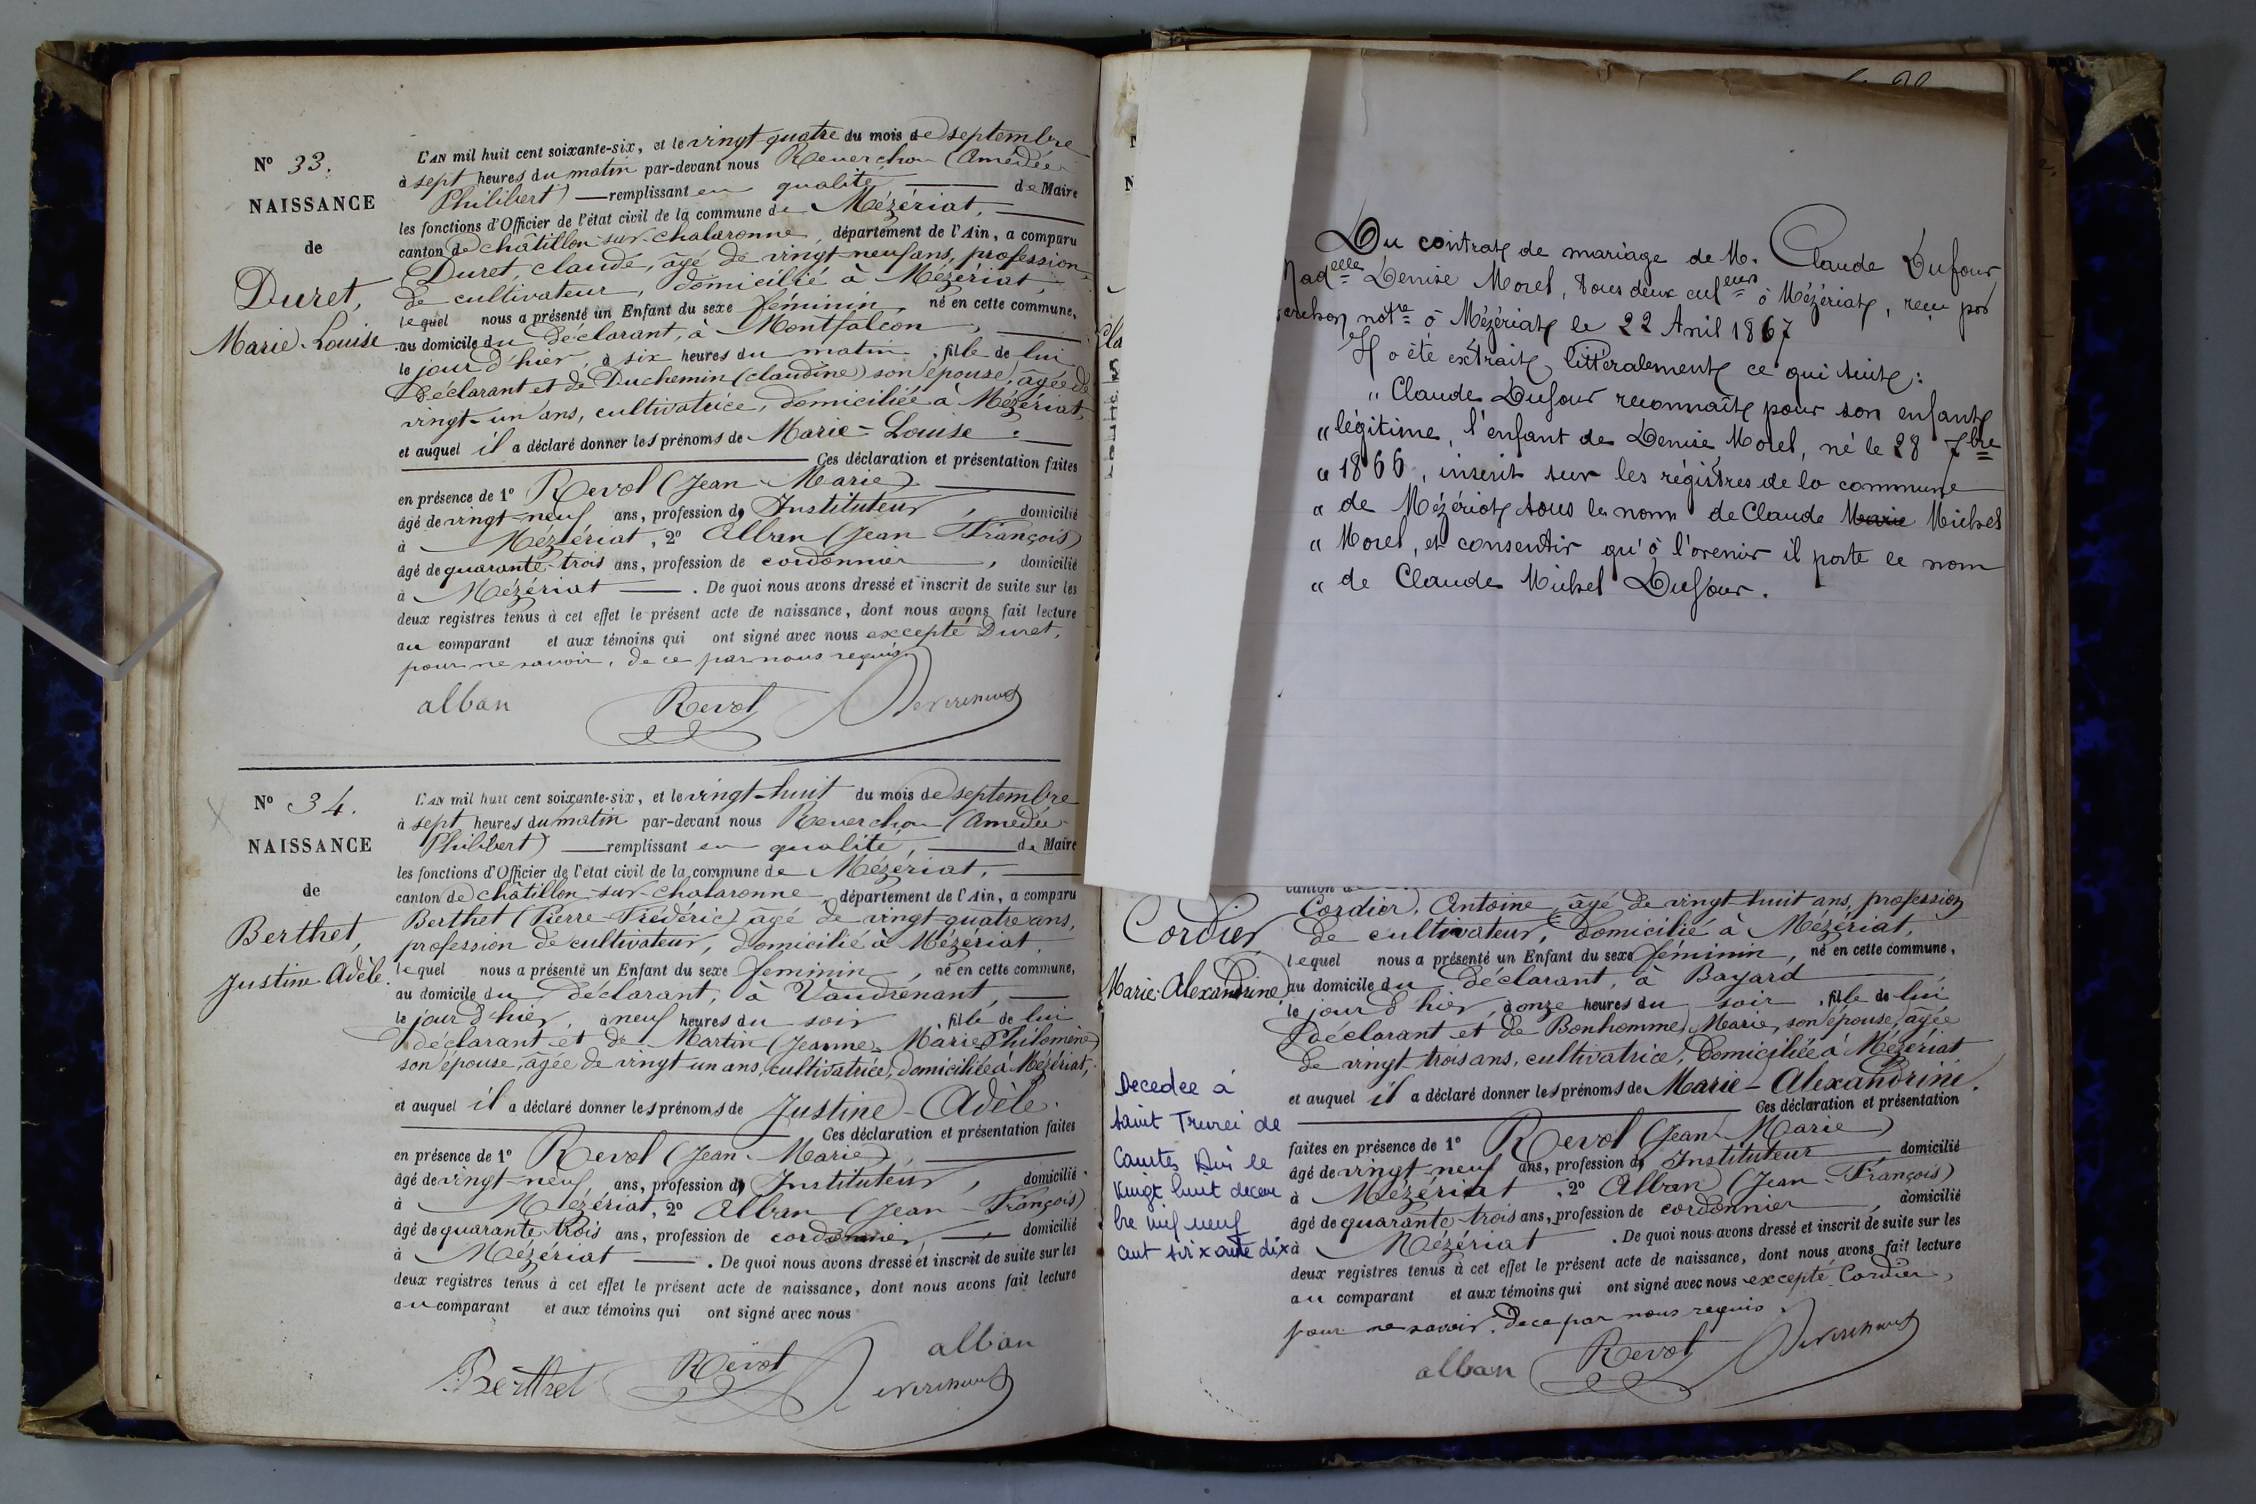 N° 33.
NAISSANCE
de
Duret,
Marie-Louise
L'AN mil huit cent soixante-six, et le vingt-quatre du mois de septembre
à sept heures du matin par-devant nous Reverchon (Amédée
Philibert) remplissant en qualité de Maire
les fonctions d'Officier de l'état civil de la commune de Mézériat,
canton de châtillon-sur-chalaronne, département de l'Ain, a comparu
Duret, claude, âgé de vingt-neuf ans, profession
de cultivateur, domicilié à Mézériat,
lequel nous a présenté un Enfant du sexe féminin, né en cette commune,
au domicile du déclarant, à Montfalcon,
le jour d'hier, à six heures du matin, fille de lui
déclarant et de Duchemin (claudine) son épouse, âgée de
vingt-un ans, cultivatrice, domiciliée à Mézériat,
et auquel il a déclaré donner les prénoms de Marie-Louise.
Ces déclaration et présentation faites
en présence de 1° Revol (Jean-Marie)
âgé de vingt-neuf ans, profession d' Instituteur, domicilié
à Mézériat, 2° Alban (Jean François)
âgé de quarante-trois ans, profession de cordonnier, domicilié
à Mézériat. De quoi nous avons dressé et inscrit de suite sur les
deux registres tenus à cet effet le présent acte de naissance, dont nous avons fait lecture
au comparant et aux témoins qui ont signé avec nous excepté Duret,
pour ne savoir, de ce par nous requis.
alban Revol
N° 34.
NAISSANCE
de
Berthet,
Justine Adèle.
L'AN mil huit cent soixante-six, et le vingt-huit du mois de septembre
à sept heures du matin par-devant nous Reverchon (Amédée
Philibert) remplissant en qualité, de Maire
les fonctions d'Officier de l'état civil de la commune de Mézériat,
canton de châtillon-sur-chalaronne, département de l'Ain, a comparu
Berthet (Pierre Frédéric) âgé de vingt quatre ans,
profession de cultivateur, domicilié à Mézériat,
lequel nous a présenté un Enfant du sexe féminin, né en cette commune,
au domicile du déclarant, à Vaudrenant,
le jour d'hier, à neuf heures du soir, fille de lui
déclarant et de Martin (Jeanne-Marie Philomène)
son épouse, âgée de vingt un ans, cultivatrice, domiciliée à Mézériat,
et auquel il a déclaré donner les prénoms de Justine-Adèle.
Ces déclaration et présentation faites
en présence de 1° Revol (Jean-Marie),
âgé de vingt-neuf ans, profession d' Instituteur, domicilié
à Mézériat, 2° Alban (Jean François)
âgé de quarante trois ans, profession de cordonnier, domicilié
à Mézériat. De quoi nous avons dressé et inscrit de suite sur les
deux registres tenus à cet effet le présent acte de naissance, dont nous avons fait lecture
au comparant et aux témoins qui ont signé avec nous
alban
Berthet Revol
Du contrat de mariage de M. Claude Dufour
Denise Morel, tous deux cul^eurs à Mézériat, reçu par
not^re à Mézériat le 22 Avril 1867
Il a été extrait littéralement ce qui suit :
" Claude Dufour reconnaît pour son enfant
" légitime, l'enfant de Denise Morel, né le 28 7bre
" 1866, inscrit sur les régistres de la commune
" de Mézériat sous le nom de Claude Marie Michel
" Morel, et consentir qu'à l'avenir il porte le nom
" de Claude Michel Dufour.
Cordier,
Marie-Alexandrine
Decedee à
saint Trivier de
Courtes Ain le
vingt huit decem
bre mil neuf
cent soixante dix
Cordier, Antoine, âgé de vingt huit ans, profession
de cultivateur, domicilié à Mézériat,
lequel nous a présenté un Enfant du sexe féminin, né en cette commune,
au domicile du déclarant, à Bayard,
le jour d'hier, à onze heures du soir, fille de lui
déclarant et de Bonhomme, Marie, son épouse, âgée
de vingt trois ans, cultivatrice, domiciliée à Mézériat
et auquel il a déclaré donner les prénoms de Marie-Alexandrine.
Ces déclaration et présentation
faites en présence de 1° Revol (Jean-Marie)
âgé de vingt-neuf ans, profession d' Instituteur domicilié
à Mézériat, 2° Alban (Jean François)
âgé de quarante trois ans, profession de cordonnier, domicilié
à Mézériat. De quoi nous avons dressé et inscrit de suite sur les
deux registres tenus à cet effet le présent acte de naissance, dont nous avons fait lecture
au comparant et aux témoins qui ont signé avec nous excepté Cordier,
pour ne savoir, de ce par nous requis.
alban Revol